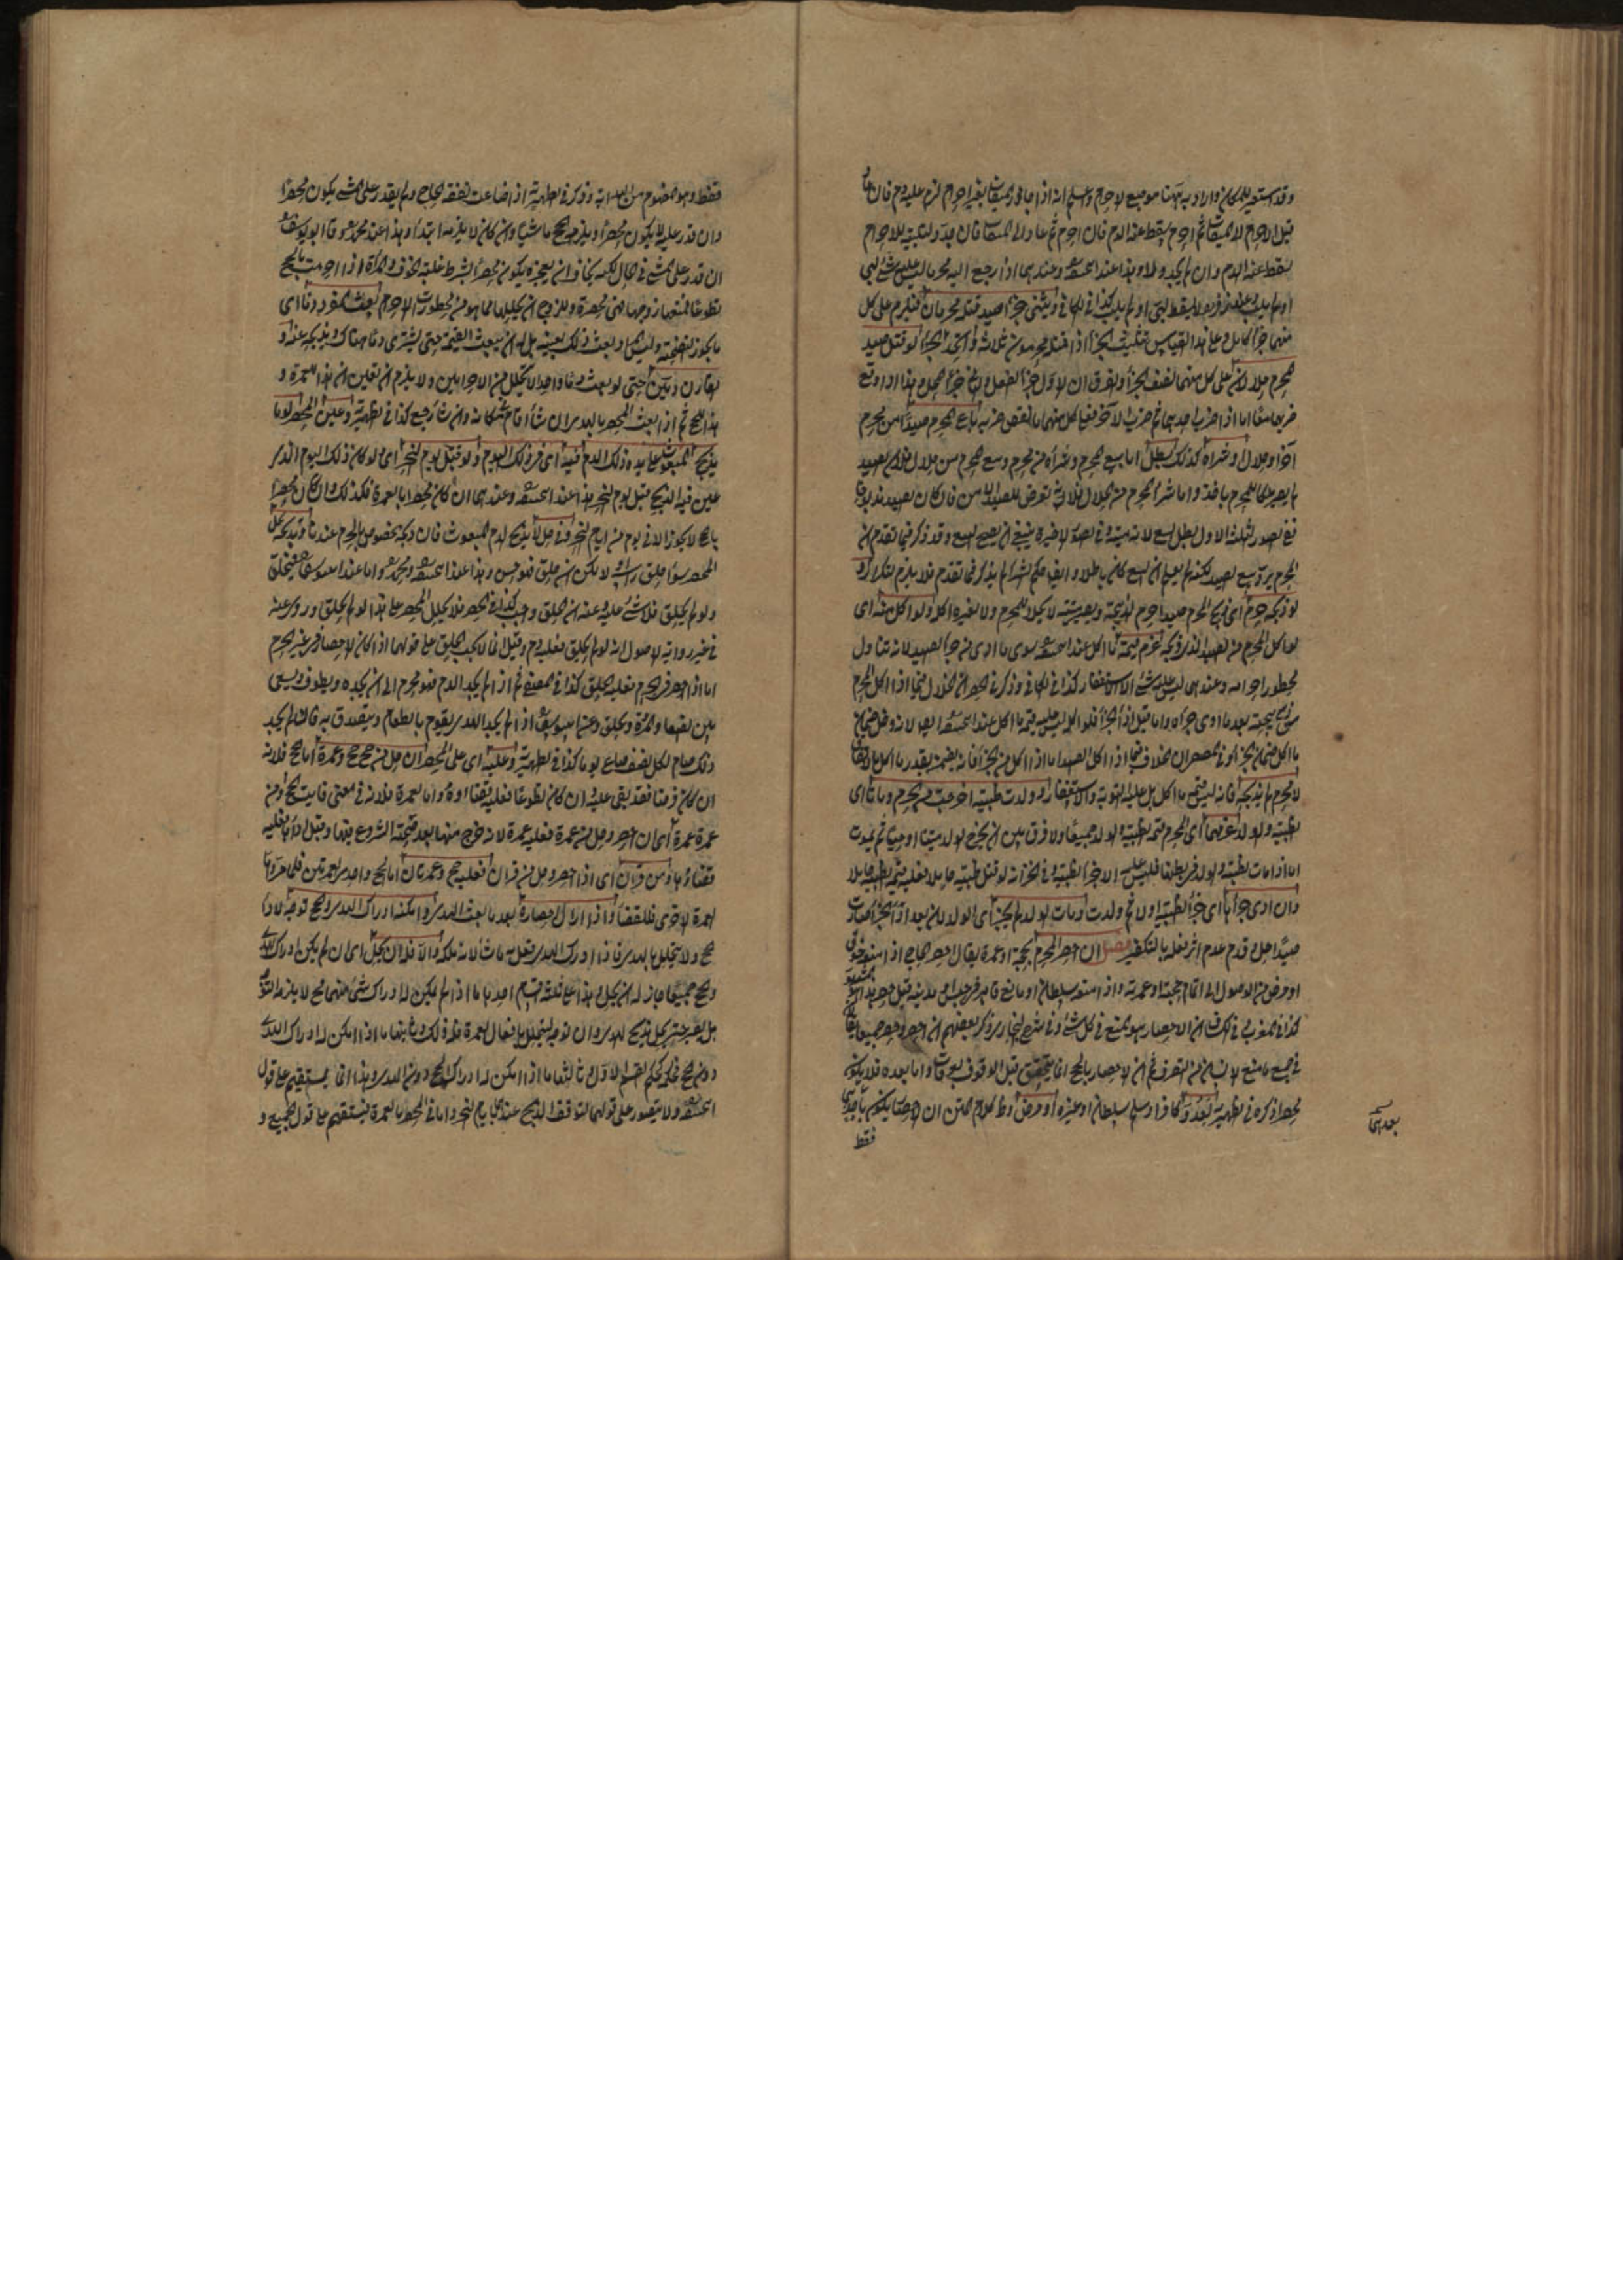 وقد استعير للمكان واراد به ههنا موضع الاحرام وسلم انه اذا جاوز الميقات بغير احرام لزم عليه دم فان
قبل الاحرام الا الميقات ثم احرم يسقط عنه الدم فان احرم ثم عاد الى الميقات فان جدد التلبية للاحرام
يسقط عنه الدم وان لم يجدد فلا وهذا عند ابي حنيفة وعندهما اذا رجع اليه محرما ليس عليه شئ لبى
اولم يلب وعند زفر لا يسقط لبى او لم يلب كذا في الكافي ويثنى جزاء صيد قتله محرمان فيلزم على كل
منهما جزاء كامل وعلى هذا القياس تثليث الجزاء اذا قتله محرمون ثلاثة واتحد الجزاء لو قتل صيد
الحرم حلالان على كل منهما نصف الجزاء والفرق ان الاول جزاء الفعل والثاني جزاء المحل وهذا اذا وقع
ضربهما معا اما اذا ضرب احدهما ثم ضرب الآخر فعلى كل منهما ما نقص ضربه باع المحرم صيدا من محرم
آخر او حلال او شراه كذلك بطل اما بيع المحرم وشراه من محرم وبيع المحرم من حلال فلان الصيد
لم يصر ملكا للمحرم باخذه واما شراء المحرم من الحلال فلان فيه تعرض للصيد الآمن فان كان الصيد
ففي الصور الثلثة الاول بطل البيع لانه ميتة وفي الصورة الاخيرة ينبغي ان يصح البيع وقد ذكر فيما تقدم ان
المحرم يرد بيع الصيد لكنه لم يعلم ان البيع كان باطلا وايضا حكم الشراء لم يذكر فيما تقدم فلا يلزم التكرار و
لو ذبحه حرم اى ذبح المحرم صيدا حرم الذبيحة ويصير ميتة لا يحل للمحرم ولا لغيره اكله ولو اكل منه اى
لو اكل المحرم من الصيد الذى ذبحه غرم قيمة ما اكل عند ابي حنيفة سوى ما ادى من جزاء الصيد لانه تناول
محظور احرامه وعندهما ليس عليه شئ الا الاستغفار كذا في الكافي وذكر في الحصر ان الخلاف فيما اذا اكل المحرم
ما اكل ضمان الجزاء وفي المصفى ان الخلاف فيما اذا اكل الصيد اما اذا اكل من الجزاء فانه يضمنه بقدر ما اكل
لا محرم لم يذبحه فانه ليس قيمة ما اكل بل عليه التوبة والاستغفار ولو ولدت ظبية اخرجت من الحرم وماتا اى
الظبية والولد غرمهما اى المحرم قيمة الظبية والولد جميعا ولا فرق بين ان يخرج الولد ميتا او حيا ثم يموت
اما اذا ماتت الظبية والولد في بطنها فليس عليه الا جزاء الظبية وفي الخزانة لو قتل ظبية حاملا فعليه قيمة الظبية حاملا
وان ادى جزاءها اى جزاء الظبية اولا ثم ولدت ومات الولد لم يجز اى الولد لان بعد اداء الجزاء صارت
صيدا حل وقدم عدم اثر فعله بالتكفير فصل ان احصر المحرم بحجة او عمرة يقال احصر الحاج اذا منعه خوف
او مرض من الوصول الى اتمام حجته او عمرته واذا منعه سلطان او مانع قاهر في حبس او مدينة قيل حصر
كذا في المغرب وفي الكشاف ان الاحصار هو المنع في كل شئ وفي شرح البخاري ذكر بعضهم ان احصر وحصر جميعا
في جميع ما منع الانسان من التصرف ثم ان الاحصار بالحج انما يتحقق قبل الوقوف بعرفات واما بعده فلا يكون
محصرا ذكره في الظهيرية بعدو كافر او مسلم سلطان او غيره او مرض وظاهر كلام المتن ان الاحصار يكون
فقط
فقط وهو المفهوم من الهداية وذكر في الظهيرية اذا ضاعت نفقة الحاج ولم يقدر على المشي يكون محصرا
وان قدر عليه لا يكون محصرا ويلزمه الحج ماشيا وان كان لا يلزمه ابتداء وهذا عند محمد وقال ابو يوسف
ان قدر على المشي في الحال لكنه يخاف ان يعجز يكون محصرا بشرط غلبة الخوف والمرأة اذا احرمت بالحج
تطوعا فمنعها زوجها فهي محصرة وللزوج ان يحللها بما هو من محظورات الاحرام بعث المفرد دما اى
ما يجوز للتضحية وليس المراد بعث ذلك بعينه بل له ان يبعث القيمة حتى يشترى دما هناك ويذبح عنه و
القارن دمين حتى لو بعث دما واحدا لا يتحلل من الاحرامين ولا يلزم ان يعين ان هذا للعمرة و
هذا للحج ثم اذا بعث المحصر بالهدى ان شاء اقام مكانه وان شاء رجع كذا في الظهيرية وعين المحصر يوما
يذبح المبعوث على يده ذلك الدم فيه اى في ذلك اليوم ولو قبل يوم النحر اى ولو كان ذلك اليوم الذى
عين فيه الذبح قبل يوم النحر هذا عند ابي حنيفة وعندهما ان كان محصرا بالعمرة فكذلك وان كان محصرا
بالحج لا يجوز الا في يوم من ايام النحر وفي حل لا يذبح الدم المبعوث فان ذبحه مخصوص بالحرم عندنا وبذبحه يحل
المحصر سواء حلق راسه او لا لكن ان حلق فهو حسن وهذا عند ابي حنيفة ومحمد واما عند ابي يوسف فيحلق
ولو لم يحلق فلا شئ عليه وعنه ان الحلق واجب كذا في الحصر فلا يحلل المحصر على هذا لو لم يحلق وروى عنه
في غير رواية الاصول انه لو لم يحلق فعليه دم وقيل انما لا يجب الحلق على قولهما اذا كان الاحصار في غير الحرم
اما اذا احصر في الحرم فعليه الحلق كذا في المصفى ثم اذا لم يجد الدم فهو محرم الى ان يجده ويطوف ويسعى
بين الصفا والمروة ويحلق وعن ابي يوسف اذا لم يجد الهدى يقوم بالطعام ويتصدق به فان لم يجد
ذلك صام لكل نصف صاع يوما كذا في الظهيرية وعليه اى على المحصر ان حل من حج حج وعمرة اما الحج فلانه
ان كان فرضا فقد بقي عليه وان كان تطوعا فعليه قضاؤه واما العمرة فلانه في معنى فائت الحج ومن
عمرة عمرة اى ان احصر وحل من عمرة فعليه عمرة لانه خرج منها بعد صحة الشروع فيها وقبل ادائها فعليه
قضاؤها ومن قران اى اذا احصر وحل من قران فعليه حج وعمرتان اما الحج واحدى العمرتين فلما مر واما
العمرة الاخرى فللقضاء واذا زال احصاره بعد ما بعث الهدى وامكنه ادراك الهدى والحج توجه لاداء
الحج ولا يتحلل بالهدى فاذا ادرك الهدى فعل به ما شاء لانه ملكه والا فلا ان يحل اى ان لم يكن ادراك الهدى
والحج جميعا جاز له ان يحل وهذا على ثلثة اقسام احدها ما اذا لم يمكن له ادراك شئ منهما فح لا يلزمه التوجه
بل يصبر حتى يحل بذبح الهدى وان توجه ليتحلل بافعال العمرة فله ذلك وثانيها ما اذا امكن له ادراك الهدى
دون الحج فحكمه حكم القسم الاول وثالثها ما اذا امكن له ادراك الحج دون الهدى وهذا انما يستقيم على قول
ابي حنيفة ولا يتصور على قولهما لتوقف الذبح عندهما بايام النحر واما في المحصر بالعمرة فيستقيم على قول الجميع و